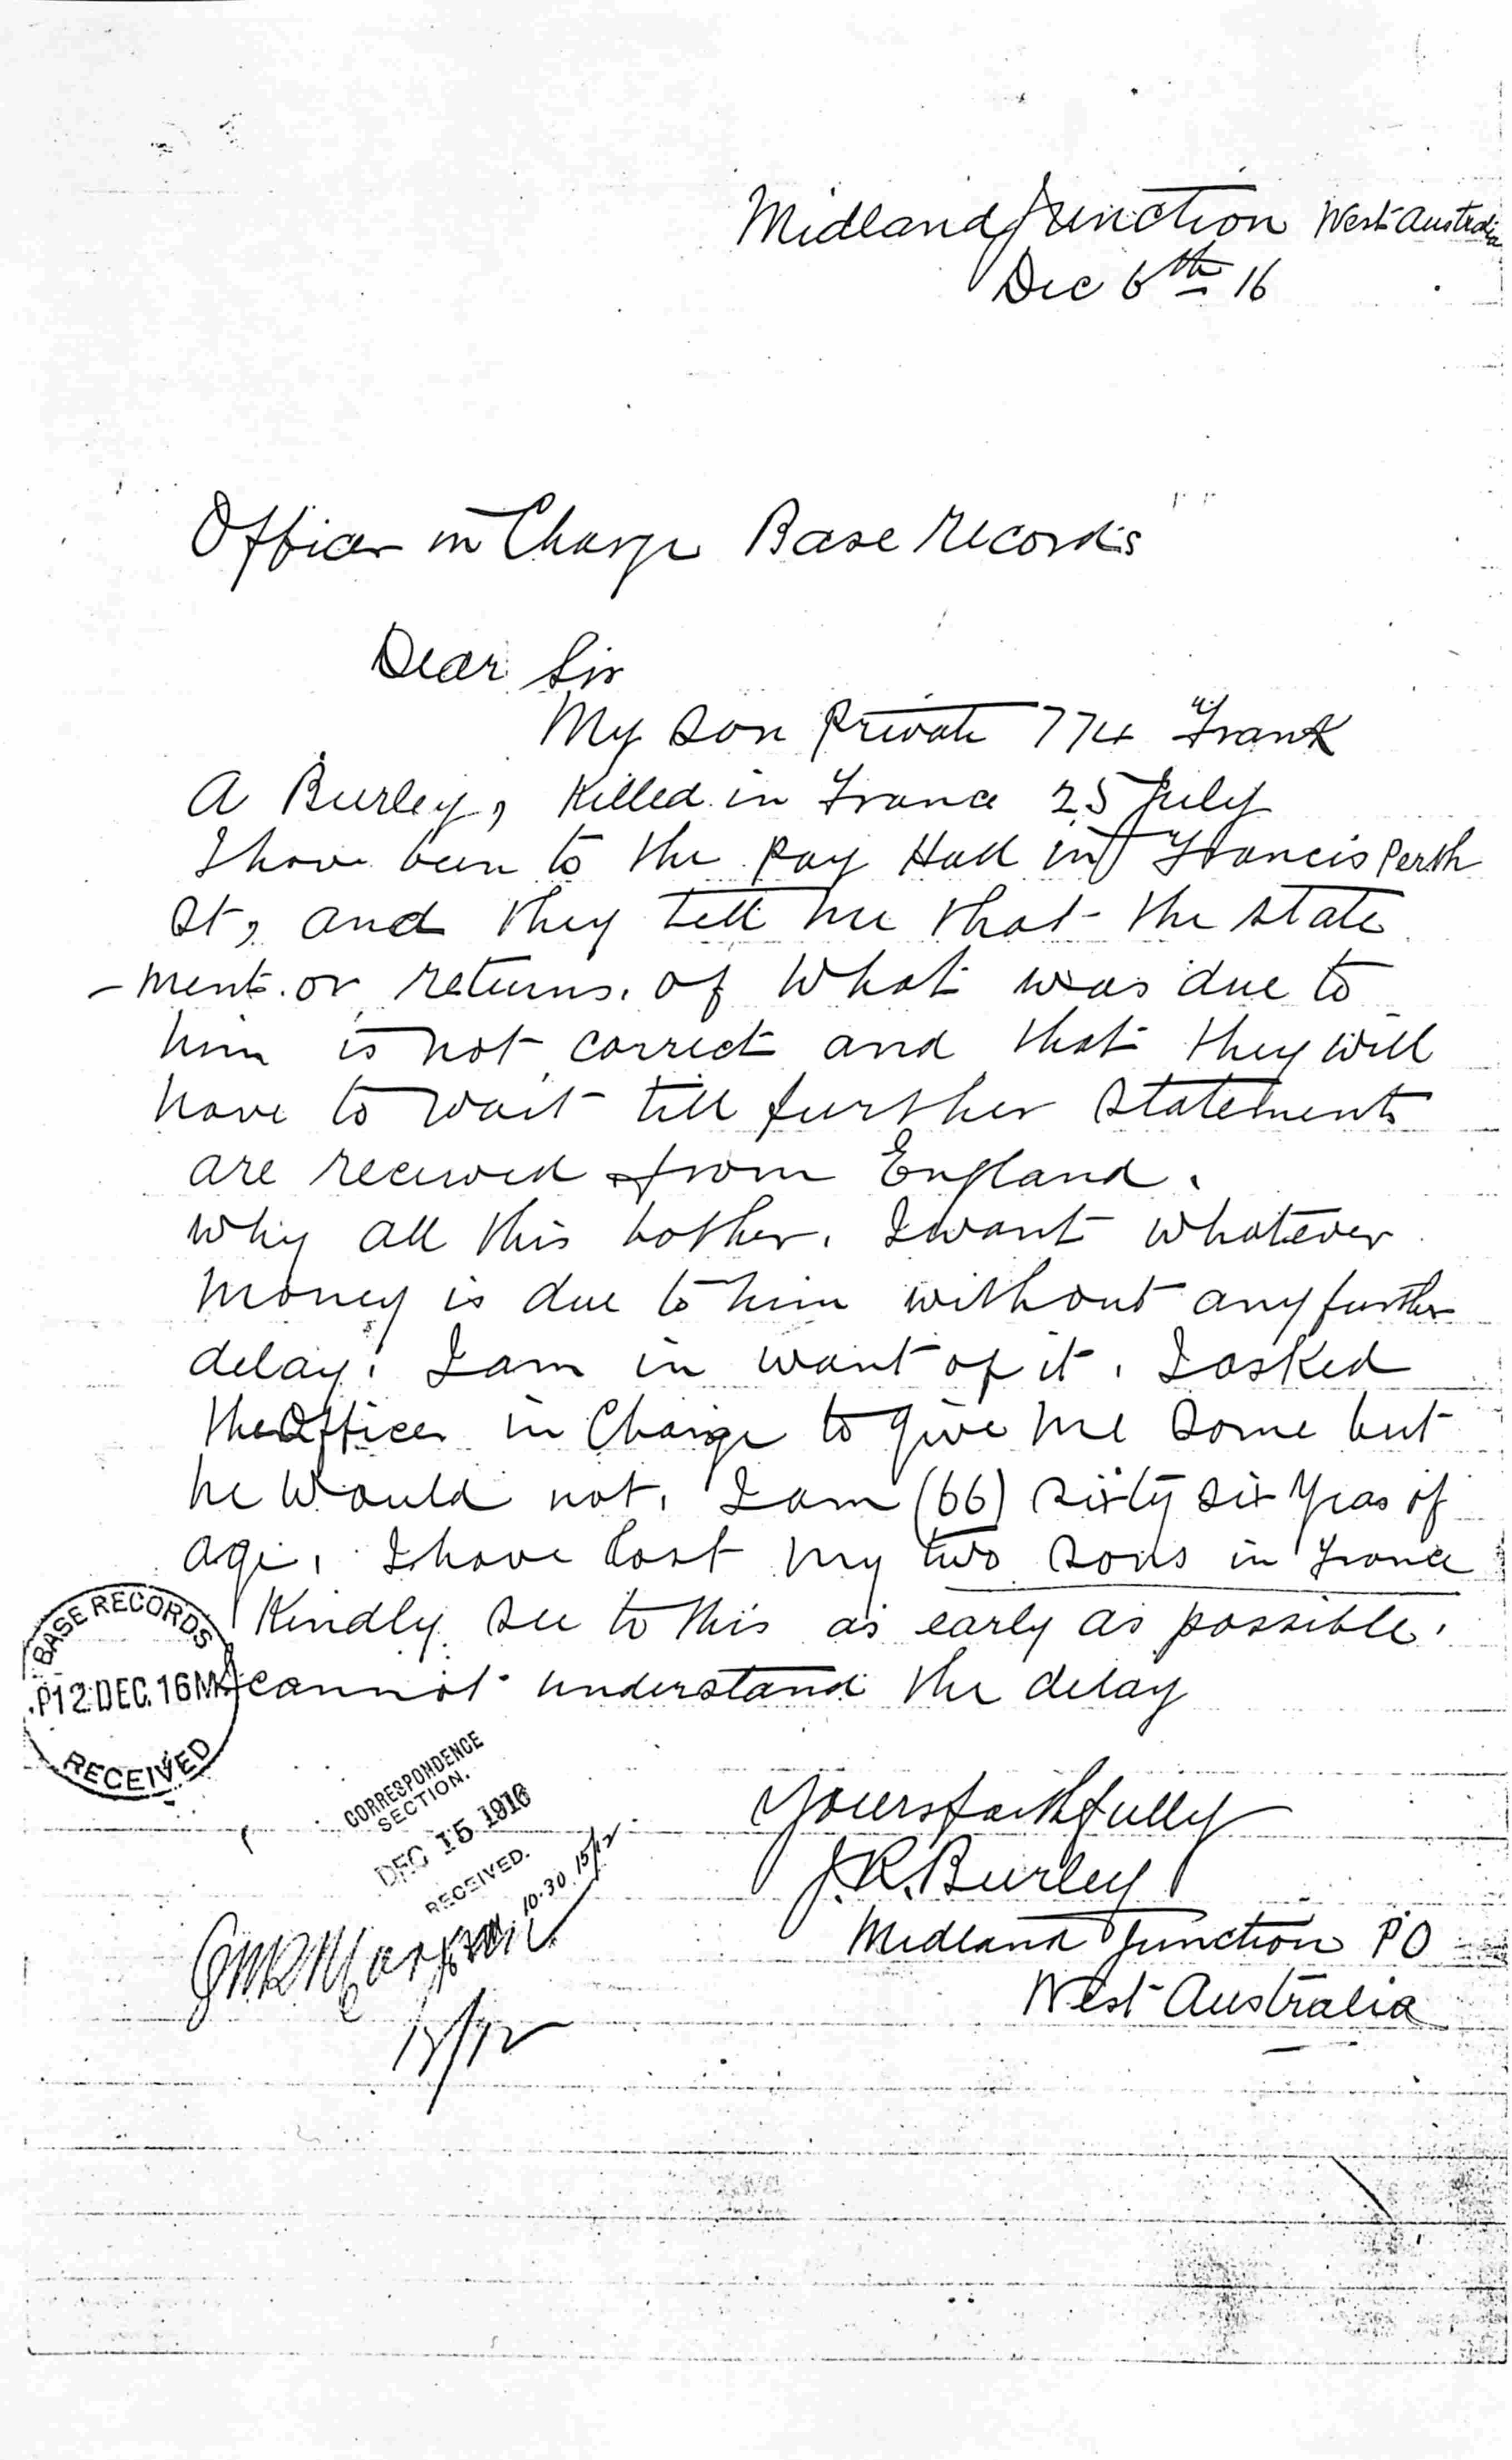 Midland Junction West Australia
Dec 6th 16
Officer in Charge Base Records
Dear Sir
My Son Private 774 Frank
A Burley, Killed in France 25 July
I have been to the Pay Hall in Francis Perth
St, and they tell me that the state
-ment or returns, of what was due to
him is not correct and that they will
have to wait till further statements
are received from England.
Why all this bother. I want whatever
money is due to him without any further
delay. I am in want of it. I asked
the Officer in Charge to give me some but
he would not. I am (66) sixty six Years of
age. I have lost my two sons in France
Kindly see to this as early as possible.
I cannot understand the delay
BASE RECORDS
P12 DEC. 16M
RECEIVED
CORRESPONDENCE
SECTION.
DEC 15 1916
RECEIVED.
10.30 15/12
Yours faithfully
J.R. Burley
Midland Junction PO
West Australia